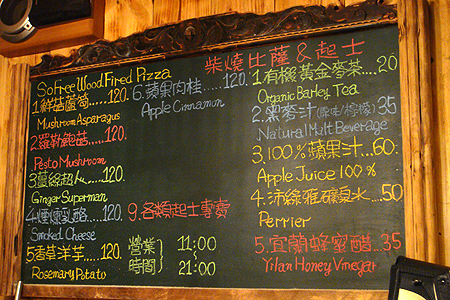 SoFree Wood Fired Pizza
柴燒比薩&起士
1.鮮菇蘆筍......120.
Mushroom Asparagus
2.羅勒鮑菇......120.
Pesto Mushroom
3.薑絲超人...120.
Ginger Superman
4.煙燻乳酪...120.
Smoked Cheese
5.香草洋芋.....120.
Rosemary Potato
6.蘋果肉桂......120.
Apple Cinnamon
9.各類起士專賣
營業 11:00
時間 21:00
1.有機黃金麥茶....20
Organic Barley Tea
2.黑麥汁(原味/檸檬) 35
Natural Malt Beverage
3.100%蘋果汁...60.
Apple Juice 100%
4.沛綠雅礦泉水...50
Perrier
5.宜蘭蜂蜜醋...35
Yilan Honey Vinegar